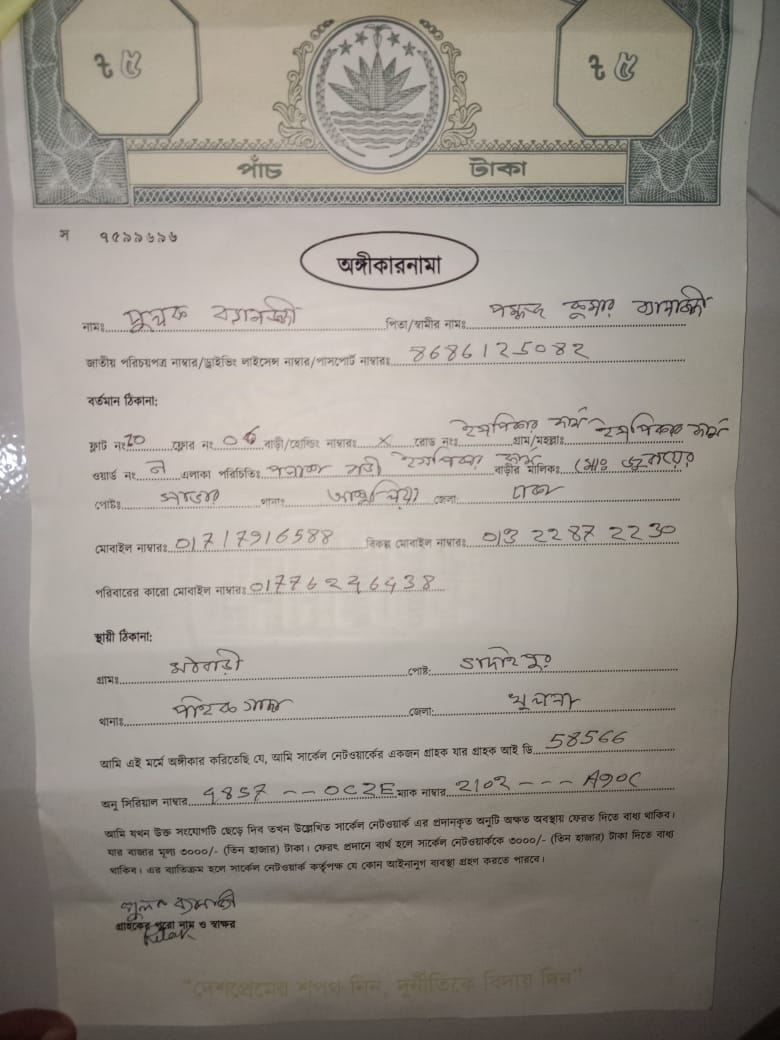 ৳ ৫ ৳ ৫
পাঁচ টাকা
স ৭৫৯৯৬৯৬
অঙ্গীকারনামা
নামঃ পুলক ব্যানার্জী পিতা/স্বামীর নামঃ পঙ্কজ কুমার ব্যানার্জী
জাতীয় পরিচয়পত্র নাম্বার/ড্রাইভিং লাইসেন্স নাম্বার/পাসপোর্ট নাম্বারঃ 8686125082
বর্তমান ঠিকানা:
ফ্লাট নং 20 ফ্লোর নং 06 বাড়ী/হোল্ডিং নাম্বারঃ X রোড নংঃ গ্রাম/মহল্লাঃ
ওয়ার্ড নং এলাকা পরিচিতিঃ বাড়ীর মালিকঃ মোঃ
পোষ্টঃ সাভার থানাঃ আশুলিয়া জেলা ঢাকা
মোবাইল নাম্বারঃ 01717916588 বিকল্প মোবাইল নাম্বারঃ 013 2287 2230
পরিবারের কারো মোবাইল নাম্বারঃ
স্থায়ী ঠিকানা:
গ্রামঃ মঠবাড়ী পোষ্ট:
থানাঃ পাইকগাছা জেলা: খুলনা
আমি এই মর্মে অঙ্গীকার করিতেছি যে, আমি সার্কেল নেটওয়ার্কের একজন গ্রাহক যার গ্রাহক আই ডি 58566
অনু সিরিয়াল নাম্বার 4857 -- 0C2E ম্যাক নাম্বার 2102 --- A90C
আমি যখন উক্ত সংযোগটি ছেড়ে দিব তখন উল্লেখিত সার্কেল নেটওয়ার্ক এর প্রদানকৃত অনুটি অক্ষত অবস্থায় ফেরত দিতে বাধ্য থাকিব।
যার বাজার মূল্য ৩০০০/- (তিন হাজার) টাকা। ফেরৎ প্রদানে ব্যর্থ হলে সার্কেল নেটওয়ার্ককে ৩০০০/- (তিন হাজার) টাকা দিতে বাধ্য
থাকিব। এর ব্যতিক্রম হলে সার্কেল নেটওয়ার্ক কর্তৃপক্ষ যে কোন আইনানুগ ব্যবস্থা গ্রহণ করতে পারবে।
পুলক ব্যানার্জী
গ্রাহকের পুরো নাম ও স্বাক্ষর
"দেশপ্রেমের শপথ নিন, দুর্নীতিকে বিদায় দিন"